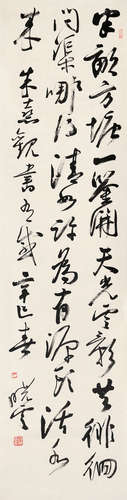 半亩方塘一鉴开天光云影共徘徊
问渠那得清如许为有源头活水
来 朱熹观书有感 辛巳春 晓云